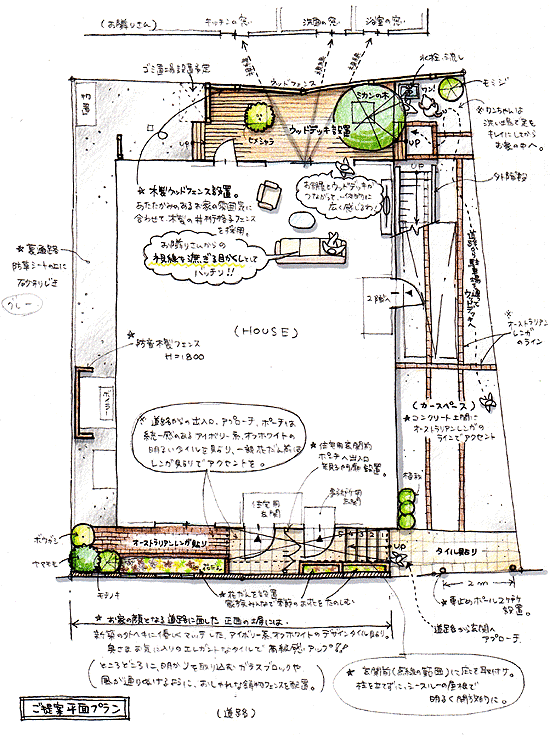 (お隣りさん)
キッチンの窓
洗面の窓
浴室の窓
ゴミ置き場設置予定
ウッドフェンス
水栓・流し
モミジ
物置
ミカンの木
ワン!
ウッドデッキ設置
ヒメシャラ
UP
UP
※ワンちゃんは
洗い場で足を
キレイにしてから
お家の中へ。
外階段
★木製ウッドフェンス設置。
あたたかみのあるお家の雰囲気に
合わせ、木製の井桁格子フェンス
を採用。
お部屋とウッドデッキが
つながって、一体的に
広く感じるわ♪
お隣りさんからの
視線を遮ぎる目かくしとして
バッチリ!!
UP
道路から駐車場を通って
ウッドデッキへ
★裏通路
防草シートの上に
砂利じき
グレー
2階へ
※オーストラリアン
レンガ
のライン
(HOUSE)
★防音木製フェンス
H=1800
ボイラー
(カースペース)
★コンクリート土間に
オーストラリアンレンガの
ラインでアクセント
※道路からの出入口、アプローチ、ポーチは
統一感のあるアイボリー系、オフホワイトの
明るいタイルを貼り、一部花だん前は
レンガ貼りでアクセントを。
★住宅用玄関前
ポーチへ出入口
設置。
住宅用
玄関
玄関
植栽
ボウガシ
オーストラリアンレンガ貼り
花だん
ヤマモモ
モチノキ
5 4 3 2 1
UP
タイル貼り
2m
★花だんを設置
家族みんなで季節のお花をたのしむ
★車止めポール2ヶ所
設置。
道路から玄関へ
アプローチ。
★お家の顔となる道路に面した正面の塀には、
新築の外ヘキに優しくマッチした、アイボリー系、オフホワイトのデザインタイル貼り。
奥さまお気に入りのエレガントなタイルで高級感アップ!!
(ところどころに、明かりを取り込むガラスブロックや、
風が通りぬけるように、おしゃれな鋳物フェンスを配置。)
★玄関前(点線の範囲)に庇を取付け。
柱を立てずに、シースルーの屋根で
明るく開放的に。
ご提案平面プラン
(道路)